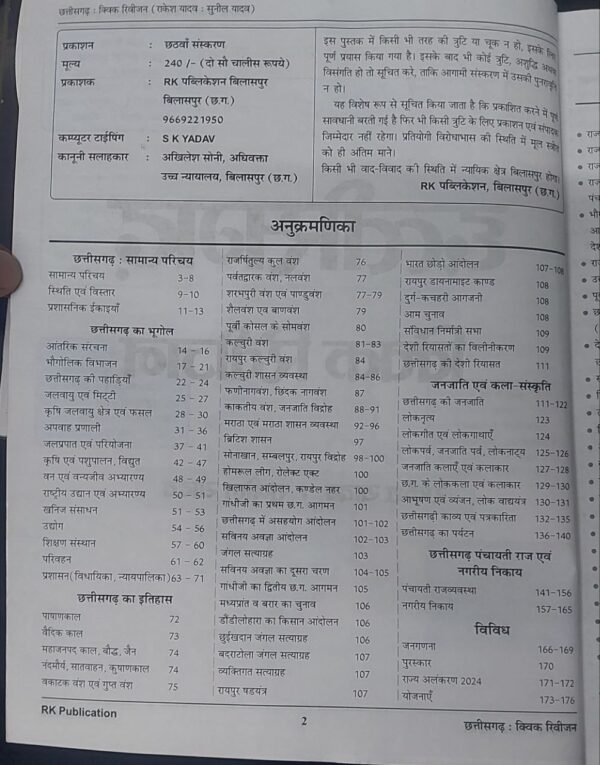 छत्तीसगढ़ : क्विक रिवीजन (राकेश यादव : सुनील यादव)
प्रकाशन : छठवाँ संस्करण
मूल्य : 240 /- (दो सौ चालीस रूपये)
प्रकाशक : RK पब्लिकेशन बिलासपुर
बिलासपुर (छ.ग.)
9669221950
कम्प्यूटर टाईपिंग : S K YADAV
कानूनी सलाहकार : अखिलेश सोनी, अधिवक्ता
उच्च न्यायालय, बिलासपुर (छ.ग.)
इस पुस्तक में किसी भी तरह की त्रुटि या चूक न हो, इसके लिए
पूर्ण प्रयास किया गया है। इसके बाद भी कोई त्रुटि, अशुद्धि अथवा
विसंगति हो तो सूचित करे, ताकि आगामी संस्करण में उसकी पुनरावृत्ति
न हो।
यह विशेष रूप से सूचित किया जाता है कि प्रकाशित करने में पूर्ण
सावधानी बरती गई है फिर भी किसी त्रुटि के लिए प्रकाशन एवं संपादक
जिम्मेदार नहीं रहेगा। प्रतियोगी विरोधाभास की स्थिति में मूल स्त्रोत
को ही अंतिम माने।
किसी भी वाद-विवाद की स्थिति में न्यायिक क्षेत्र बिलासपुर होगा।
RK पब्लिकेशन, बिलासपुर (छ.ग.)
अनुक्रमणिका
छत्तीसगढ़ : सामान्य परिचय
सामान्य परिचय 3-8
स्थिति एवं विस्तार 9-10
प्रशासनिक ईकाइयाँ 11-13
छत्तीसगढ़ का भूगोल
आंतरिक संरचना 14 - 16
भौगोलिक विभाजन 17 - 21
छत्तीसगढ़ की पहाड़ियाँ 22 - 24
जलवायु एवं मिट्टी 25 - 27
कृषि जलवायु क्षेत्र एवं फसल 28 - 30
अपवाह प्रणाली 31 - 36
जलप्रपात एवं परियोजना 37 - 41
कृषि एवं पशुपालन, विद्युत 42 - 47
वन एवं वन्यजीव अभ्यारण्य 48 - 49
राष्ट्रीय उद्यान एवं अभ्यारण्य 50 - 51
खनिज संसाधन 51 - 53
उद्योग 54 - 56
शिक्षण संस्थान 57 - 60
परिवहन 61 - 62
प्रशासन (विधायिका, न्यायपालिका) 63 - 71
छत्तीसगढ़ का इतिहास
पाषाणकाल 72
वैदिक काल 73
महाजनपद काल, बौद्ध, जैन 74
नंदमौर्य, सातवाहन, कुषाणकाल 74
वकाटक वंश एवं गुप्त वंश 75
राजर्षितुल्य कुल वंश 76
पर्वतद्वारक वंश, नलवंश 77
शरभपुरी वंश एवं पाण्डुवंश 77-79
शैलवंश एवं बाणवंश 79
पूर्वी कोसल के सोमवंश 80
कल्चुरी वंश 81-83
रायपुर कल्चुरी वंश 84
कल्चुरी शासन व्यवस्था 84-86
फणीनागवंश, छिंदक नागवंश 87
काकतीय वंश, जनजाति विद्रोह 88-91
मराठा एवं मराठा शासन व्यवस्था 92-96
ब्रिटिश शासन 97
सोनाखान, सम्बलपुर, रायपुर विद्रोह 98-100
होमरूल लीग, रोलेक्ट एक्ट 100
खिलाफत आंदोलन, कण्डेल नहर 100
गांधीजी का प्रथम छ.ग. आगमन 101
छत्तीसगढ़ में असहयोग आंदोलन 101-102
सविनय अवज्ञा आंदोलन 102-103
जंगल सत्याग्रह 103
सविनय अवज्ञा का दूसरा चरण 104-105
गांधीजी का द्वितीय छ.ग. आगमन 105
मध्यप्रांत व बरार का चुनाव 106
डौंडीलोहारा का किसान आंदोलन 106
छुईखदान जंगल सत्याग्रह 106
बदराटोला जंगल सत्याग्रह 107
व्यक्तिगत सत्याग्रह 107
रायपुर षडयंत्र 107
भारत छोड़ो आंदोलन 107-108
रायपुर डायनामाइट काण्ड 108
दुर्ग-कचहरी आगजनी 108
आम चुनाव 108
संविधान निर्मात्री सभा 109
देशी रियासतों का विलीनीकरण 109
छत्तीसगढ़ की देशी रियासत 111
जनजाति एवं कला-संस्कृति
छत्तीसगढ़ की जनजाति 111-122
लोकनृत्य 123
लोकगीत एवं लोकगाथाएँ 124
लोकपर्व, जनजाति पर्व, लोकनाट्य 125-126
जनजाति कलाएँ एवं कलाकार 127-128
छ.ग. के लोककला एवं कलाकार 129-130
आभूषण एवं व्यंजन, लोक वाद्ययंत्र 130-131
छत्तीसगढ़ी काव्य एवं पत्रकारिता 132-135
छत्तीसगढ़ का पर्यटन 136-140
छत्तीसगढ़ पंचायती राज एवं
नगरीय निकाय
पंचायती राजव्यवस्था 141-156
नगरीय निकाय 157-165
विविध
जनगणना 166-169
पुरस्कार 170
राज्य अलंकरण 2024 171-172
योजनाएँ 173-176
RK Publication
2
छत्तीसगढ़ : क्विक रिवीजन